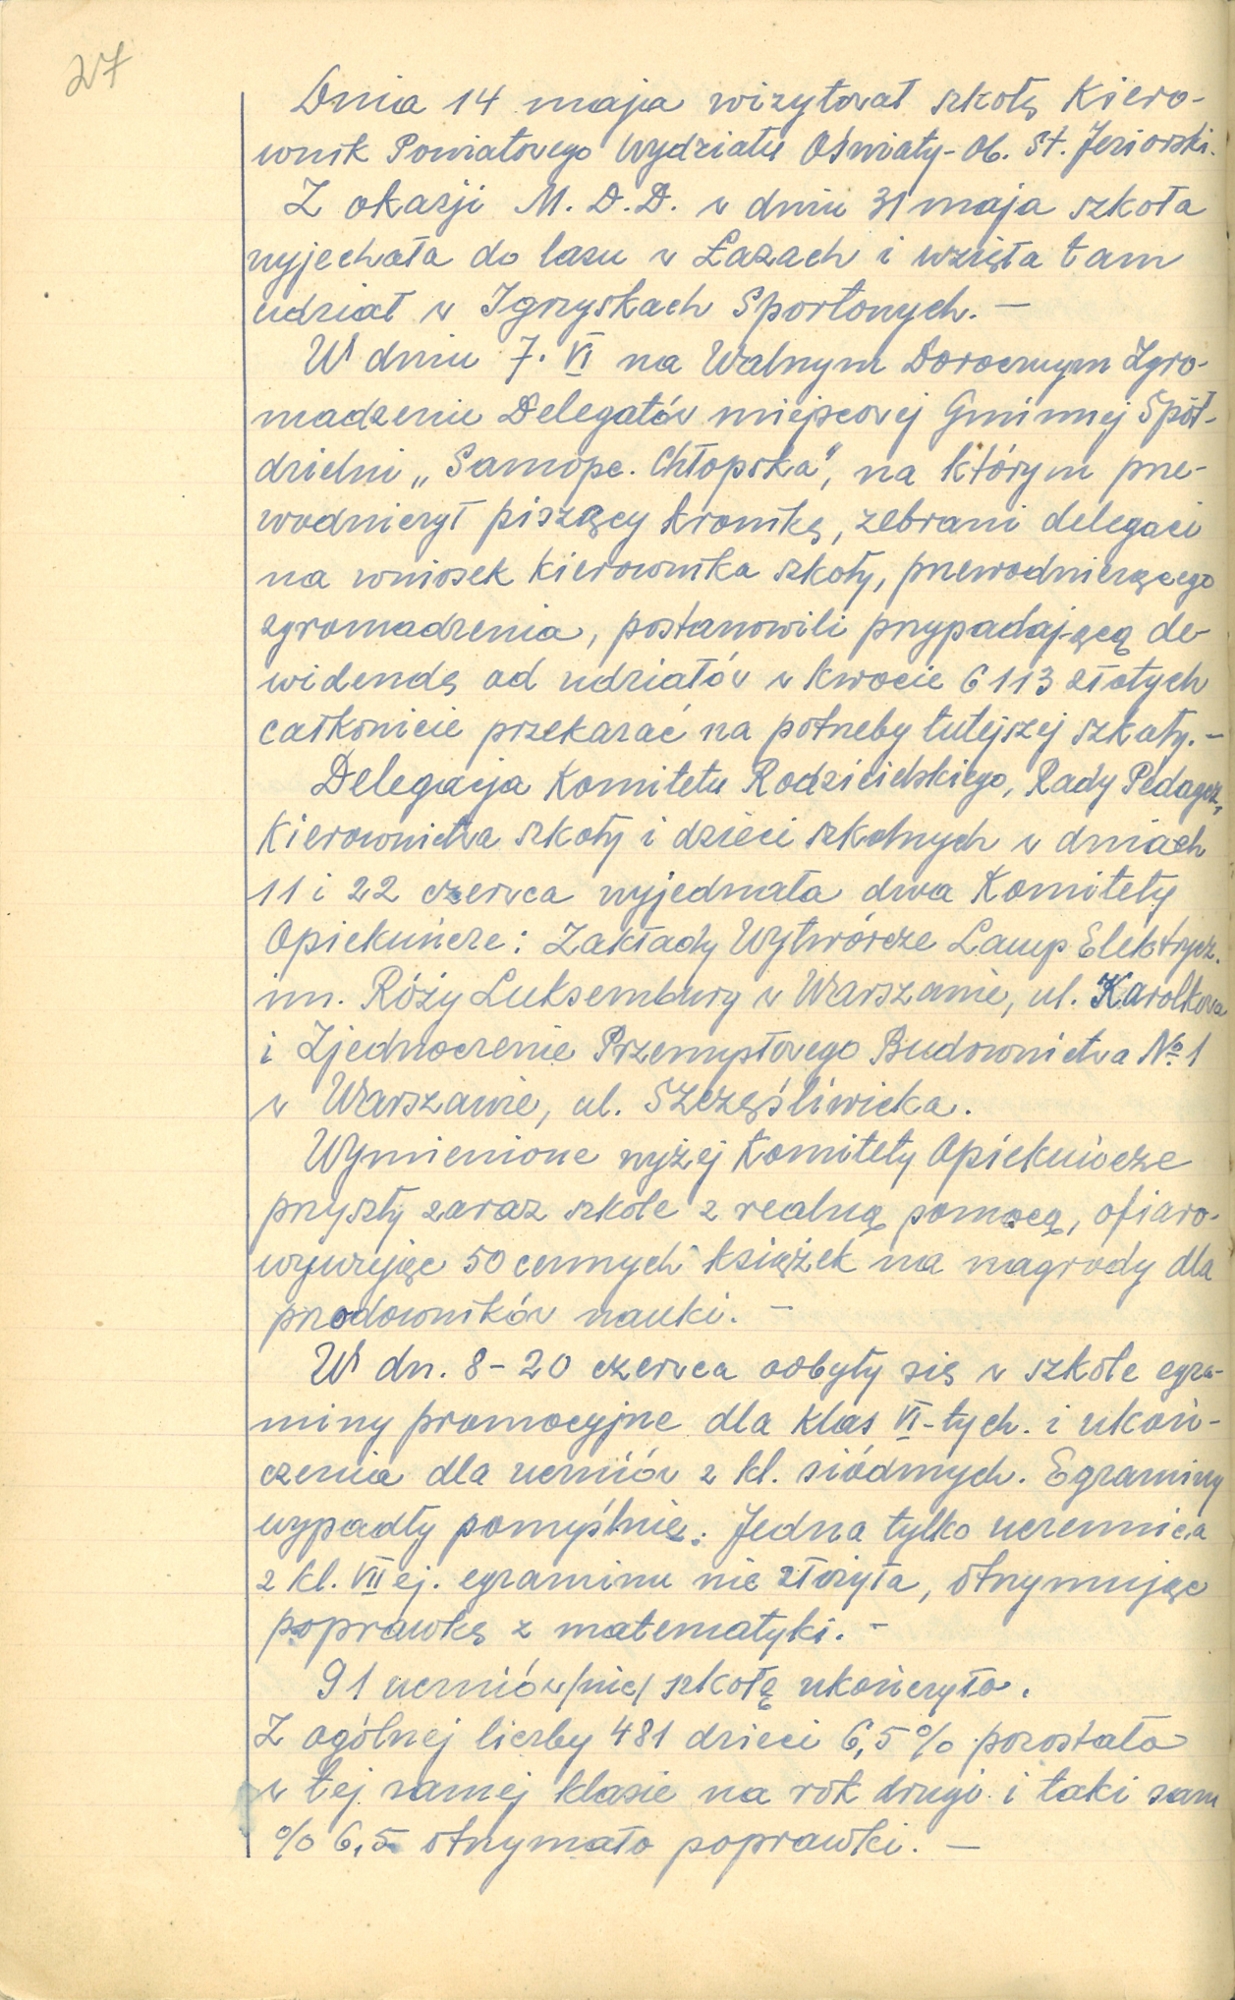 27
Dnia 14 maja wizytował szkołę Kiero-
wnik Powiatowego Wydziału Oświaty - Ob. St. Jeziorski.
Z okazji M. D. D. w dniu 31 maja szkoła
wyjechała do lasu w Łazach i wzięła tam
udział w Igrzyskach Sportowych. —
W dniu 7. VI na Walnym Dorocznym Zgro-
madzeniu Delegatów miejscowej Gminnej Spół-
dzielni „Samopc. Chłopska”, na którym prze-
wodniczył piszący kronikę, zebrani delegaci
na wniosek kierownika szkoły, przewodniczącego
zgromadzenia, postanowili przypadającą de-
widendę od udziałów w kwocie 6113 złotych
całkowicie przekazać na potrzeby tutejszej szkoły. —
Delegacja Komitetu Rodzicielskiego, Rady Pedagog.,
Kierownictwa szkoły i dzieci szkolnych w dniach
11 i 22 czerwca wyjednała dwa Komitety
Opiekuńcze: Zakłady Wytwórcze Lamp Elektrycz.
im. Róży Luksemburg w Warszawie, ul. Karolkowa
i Zjednoczenie Przemysłowego Budownictwa № 1
w Warszawie, ul. Szczęśliwicka.
Wymienione wyżej Komitety Opiekuńcze
przyszły zaraz szkole z realną pomocą, ofiaro-
wywując 50 cennych książek na nagrody dla
przodowników nauki. —
W dn. 8 - 20 czerwca odbyły się w szkole egza-
miny promocyjne dla klas VI-tych. i ukoń-
czenia dla uczniów z kl. siódmych. Egzaminy
wypadły pomyślnie. Jedna tylko uczennica
z kl. VII ej. egzaminu nie złożyła, otrzymując
poprawkę z matematyki. —
91 uczniów /nic/ szkołę ukończyło.
Z ogólnej liczby 481 dzieci 6,5 % pozostało
w tej samej klasie na rok drugi i taki sam
% 6,5 otrzymało poprawki. —